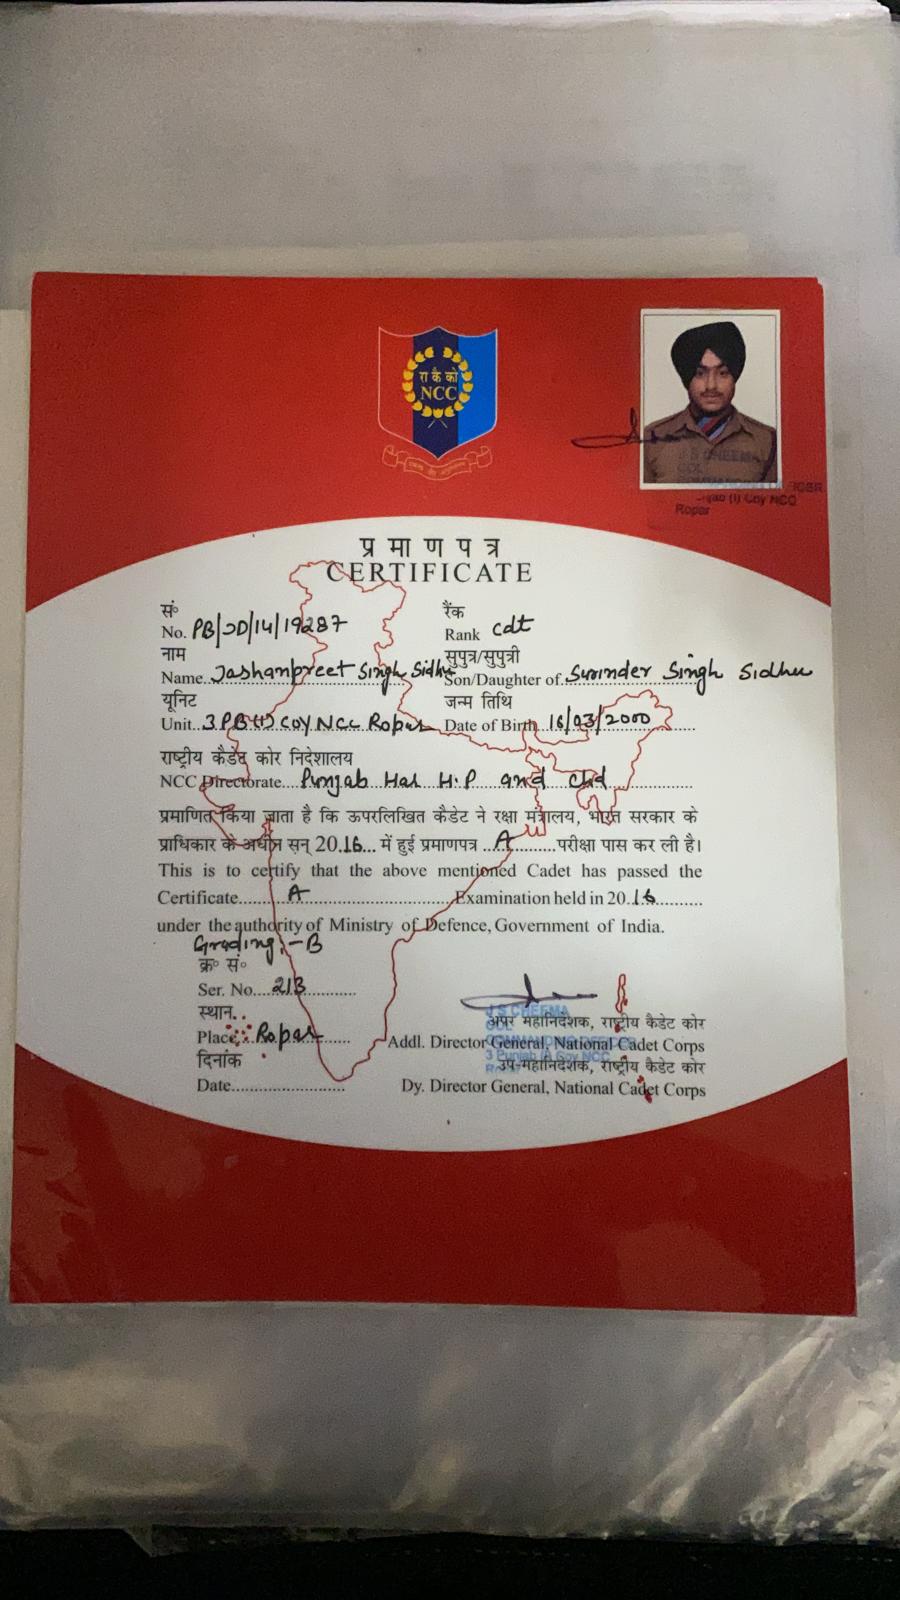 रा कै को
NCC
J S CHEEMA
COL
COMMANDING OFFICER
(I) Coy NCC
Ropar
प्रमाणपत्र
CERTIFICATE
सं॰ रैंक
No. PB/JD/14/19287 Rank cdt
नाम सुपुत्र/सुपुत्री
Name Jashanpreet Singh Sidhu Son/Daughter of Surinder Singh Sidhu
यूनिट जन्म तिथि
Unit 3 PB (I) COY NCC Ropar Date of Birth 16/03/2000
राष्ट्रीय कैडेट कोर निदेशालय
NCC Directorate Punjab Har H.P and Chd
प्रमाणित किया जाता है कि ऊपरलिखित कैडेट ने रक्षा मंत्रालय, भारत सरकार के
प्राधिकार के अधीन सन् 2016 में हुई प्रमाणपत्र A परीक्षा पास कर ली है।
This is to certify that the above mentioned Cadet has passed the
Certificate A Examination held in 2016
under the authority of Ministry of Defence, Government of India.
Grading:- B
क्र॰ सं॰
Ser. No. 213
स्थान
Place Ropar
दिनांक
Date
J S CHEEMA
COL
COMMANDING OFFICER
3 Punjab (I) Coy NCC
अपर महानिदेशक, राष्ट्रीय कैडेट कोर
Addl. Director General, National Cadet Corps
उप-महानिदेशक, राष्ट्रीय कैडेट कोर
Dy. Director General, National Cadet Corps